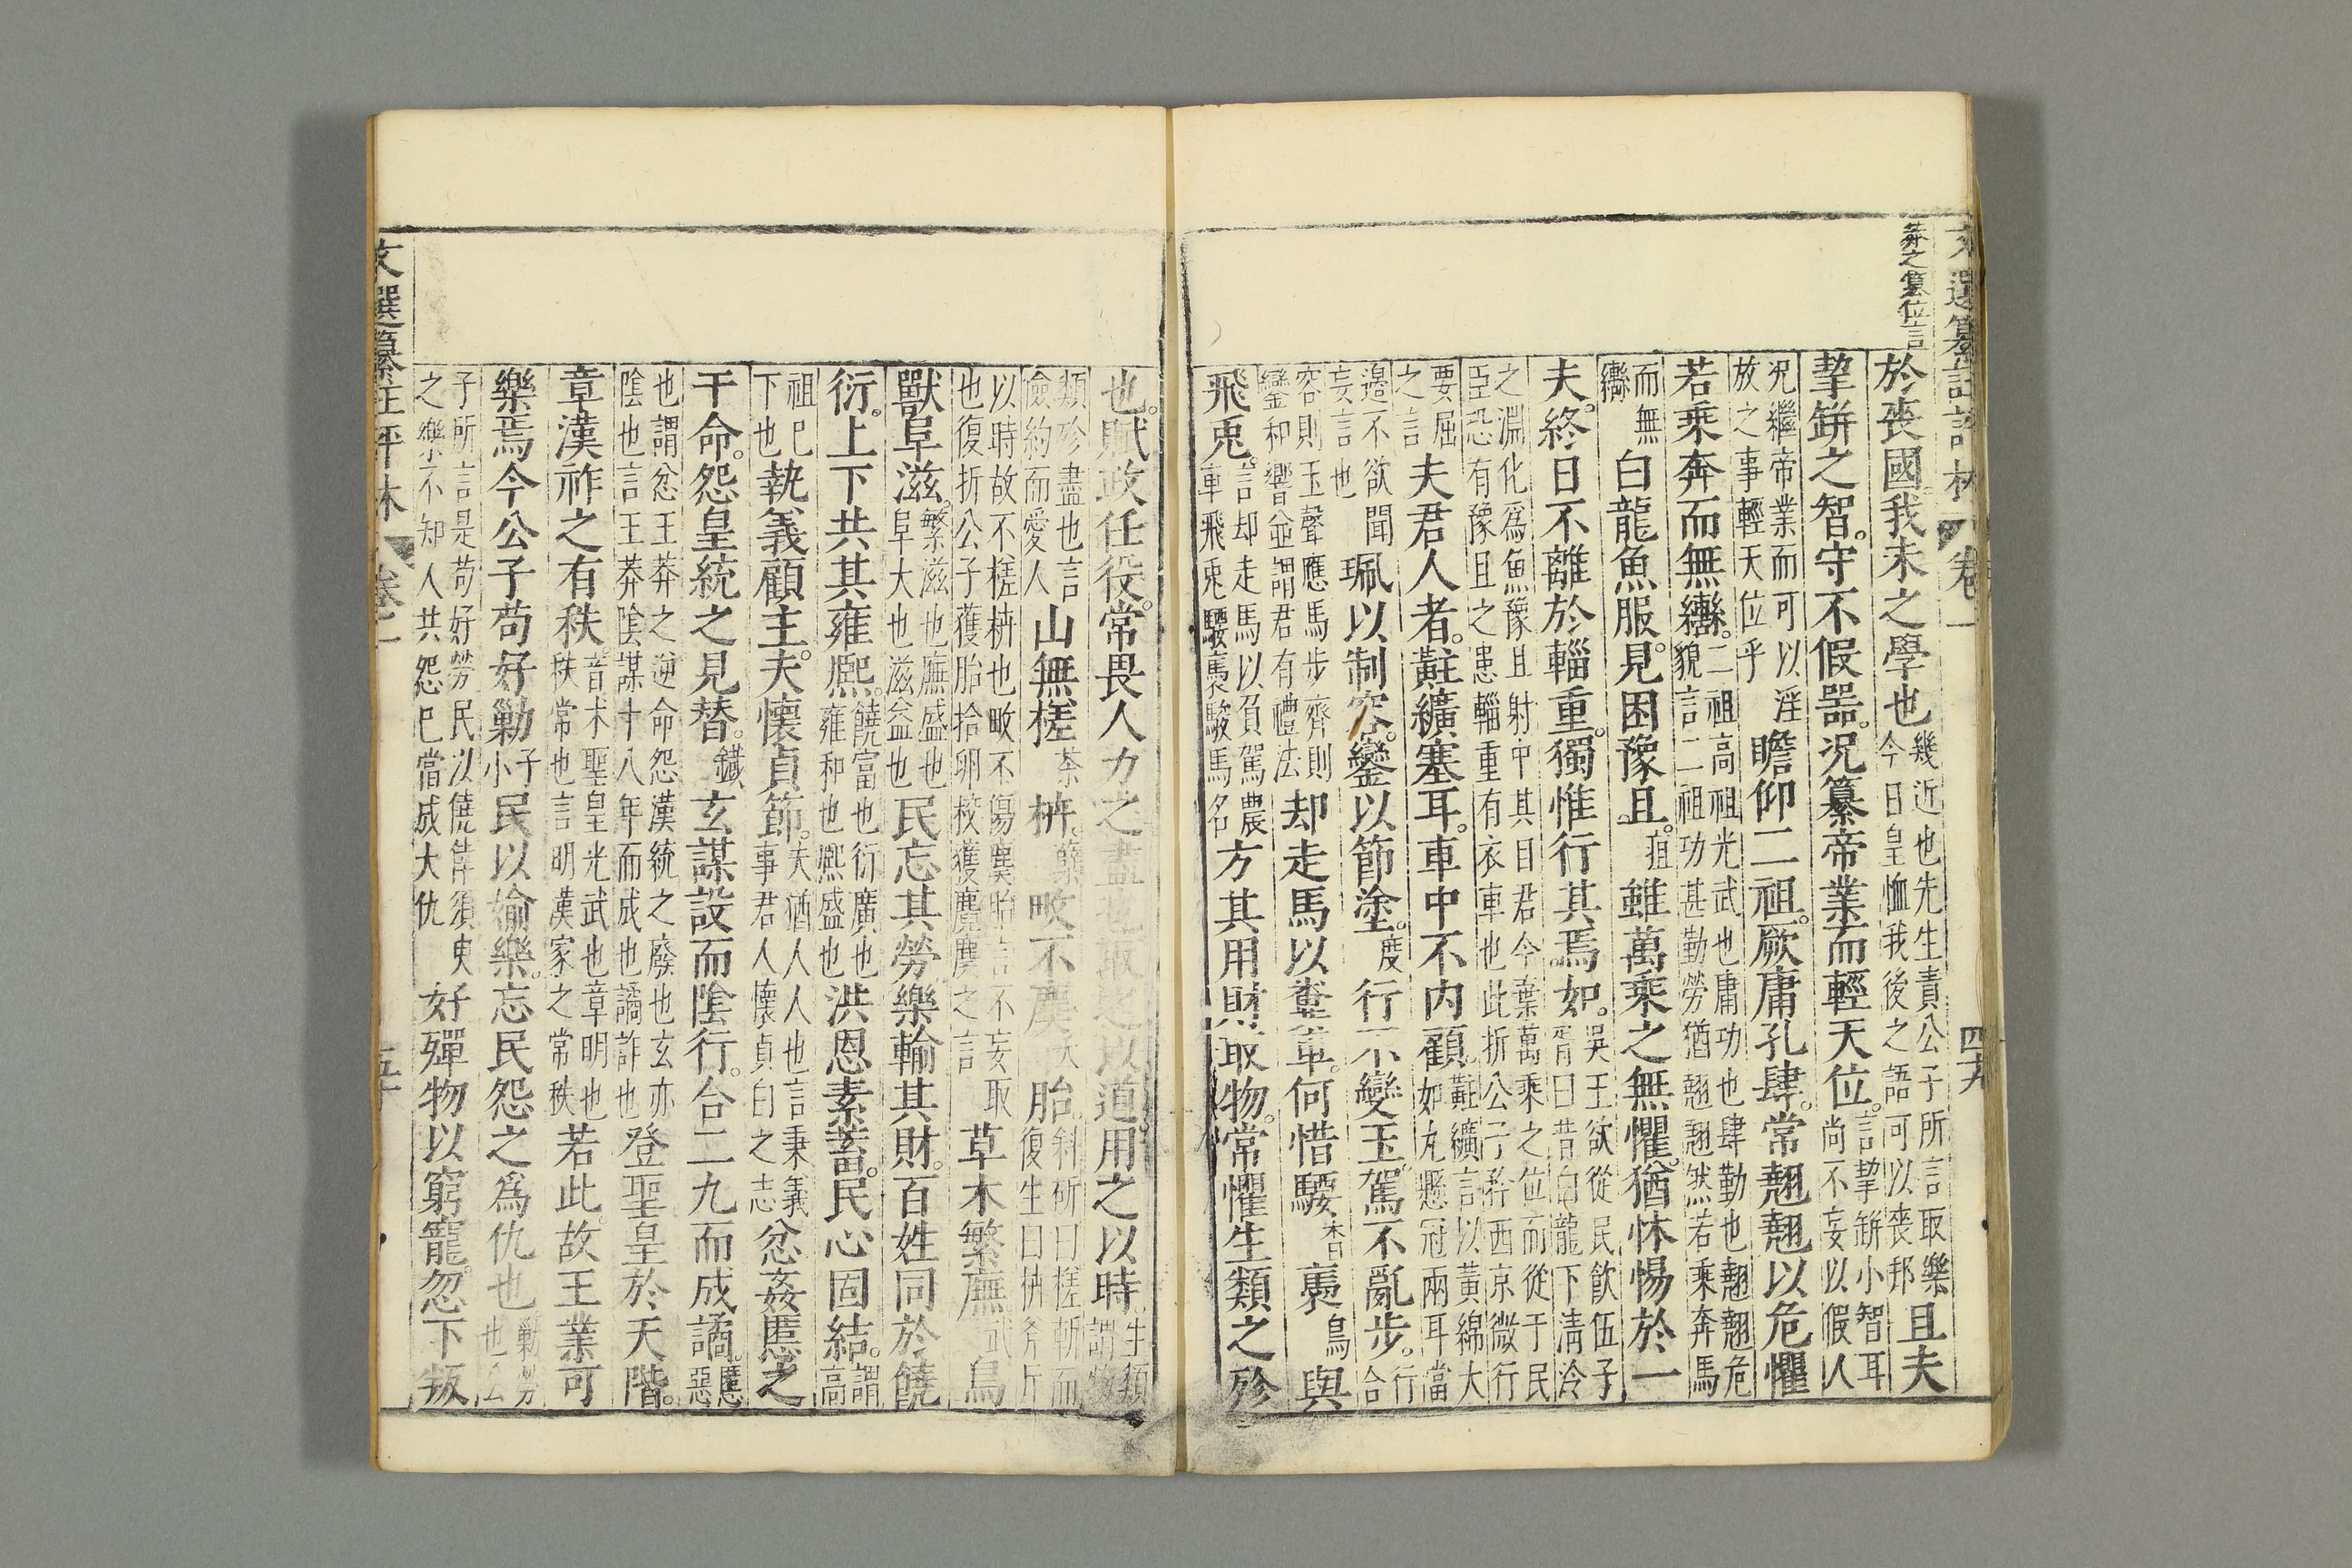 莽之簒位言
文選纂註評林 卷一 四十九
於喪國我未之學也幾近也先生責公子所言取樂今日皇恤我後之語可以喪邦且夫
挈缾之智。守不假器。況纂帝業而輕天位。言挈缾小智耳尚不妄以假人
況繼帝業而可以淫放之事輕天位乎瞻仰二祖。厥庸孔肆。常翹翹以危懼
若乘奔而無轡。二祖高祖光武也庸功也肆勤也翹翹危貌言二祖功甚勤勞猶翹翹然若乘奔馬
而無轡白龍魚服。見困豫且。疽雖萬乘之無懼。猶怵惕於一
夫。終日不離於輜重。獨惟行其焉如。吳王欲從民飲伍子胥曰昔白龍下清泠
之淵化爲魚豫且射中其目君今棄萬乘之位而從于民臣恐有豫且之患輜重有衣車也此折公子矜西京微行
要屈之言夫君人者。黈纊塞耳。車中不內顧。黈纊言以黃綿大如丸懸冠兩耳當
邉不欲聞妄言也珮以制容。鑾以節塗。度行不變玉。駕不亂步。行合
容則玉聲應馬步齊則鑾和響並謂君有禮法却走馬以糞車。何惜騕杳褭鳥與
飛兎。言却走馬以負駕農車飛兎騕褭駿馬名方其用財取物。常懼生類之殄
也。賦政任役。常畏人力之盡也取之以道用之以時。生類謂物
類殄盡也言儉約而愛人山無槎荼枿。櫱畋不麌妖胎。斜斫曰槎斬而復生曰枿斧斤
以時故不槎枿也畋不傷麌胎言不妄取也復折公子獲胎拾卵校獲麑麌之言草木繁廡武鳥
獸阜滋。繁滋也廡盛也阜大也滋益也民忘其勞樂輸其財。百姓同於饒
衍。上下共其雍熙。饒富也衍廣也雍和也熙盛也洪恩素蓄。民心固結。謂高
祖巳下也執義顧主。夫懷貞節。夫猶人人也言秉義事君人懷貞白之志忿姦慝之
干命。怨皇統之見替。鐵玄謀設而陰行。合二九而成譎。慝惡
也謂忿王莽之逆命怨漢統之廢也玄亦陰也言王莽陰謀十八年而成也譎詐也登聖皇於天階。
章漢祚之有秩。音朮聖皇光武也章明也秩常也言明漢家之常秩若此。故王業可
樂焉今公子苟好勦子小民以媮樂。忘民怨之爲仇也勦勞也公
子所言是苟好勞民以饒偫須臾之樂不知人共怨巳當成大仇好殫物以窮寵。忽下叛
文選纂註評林 卷一 五十